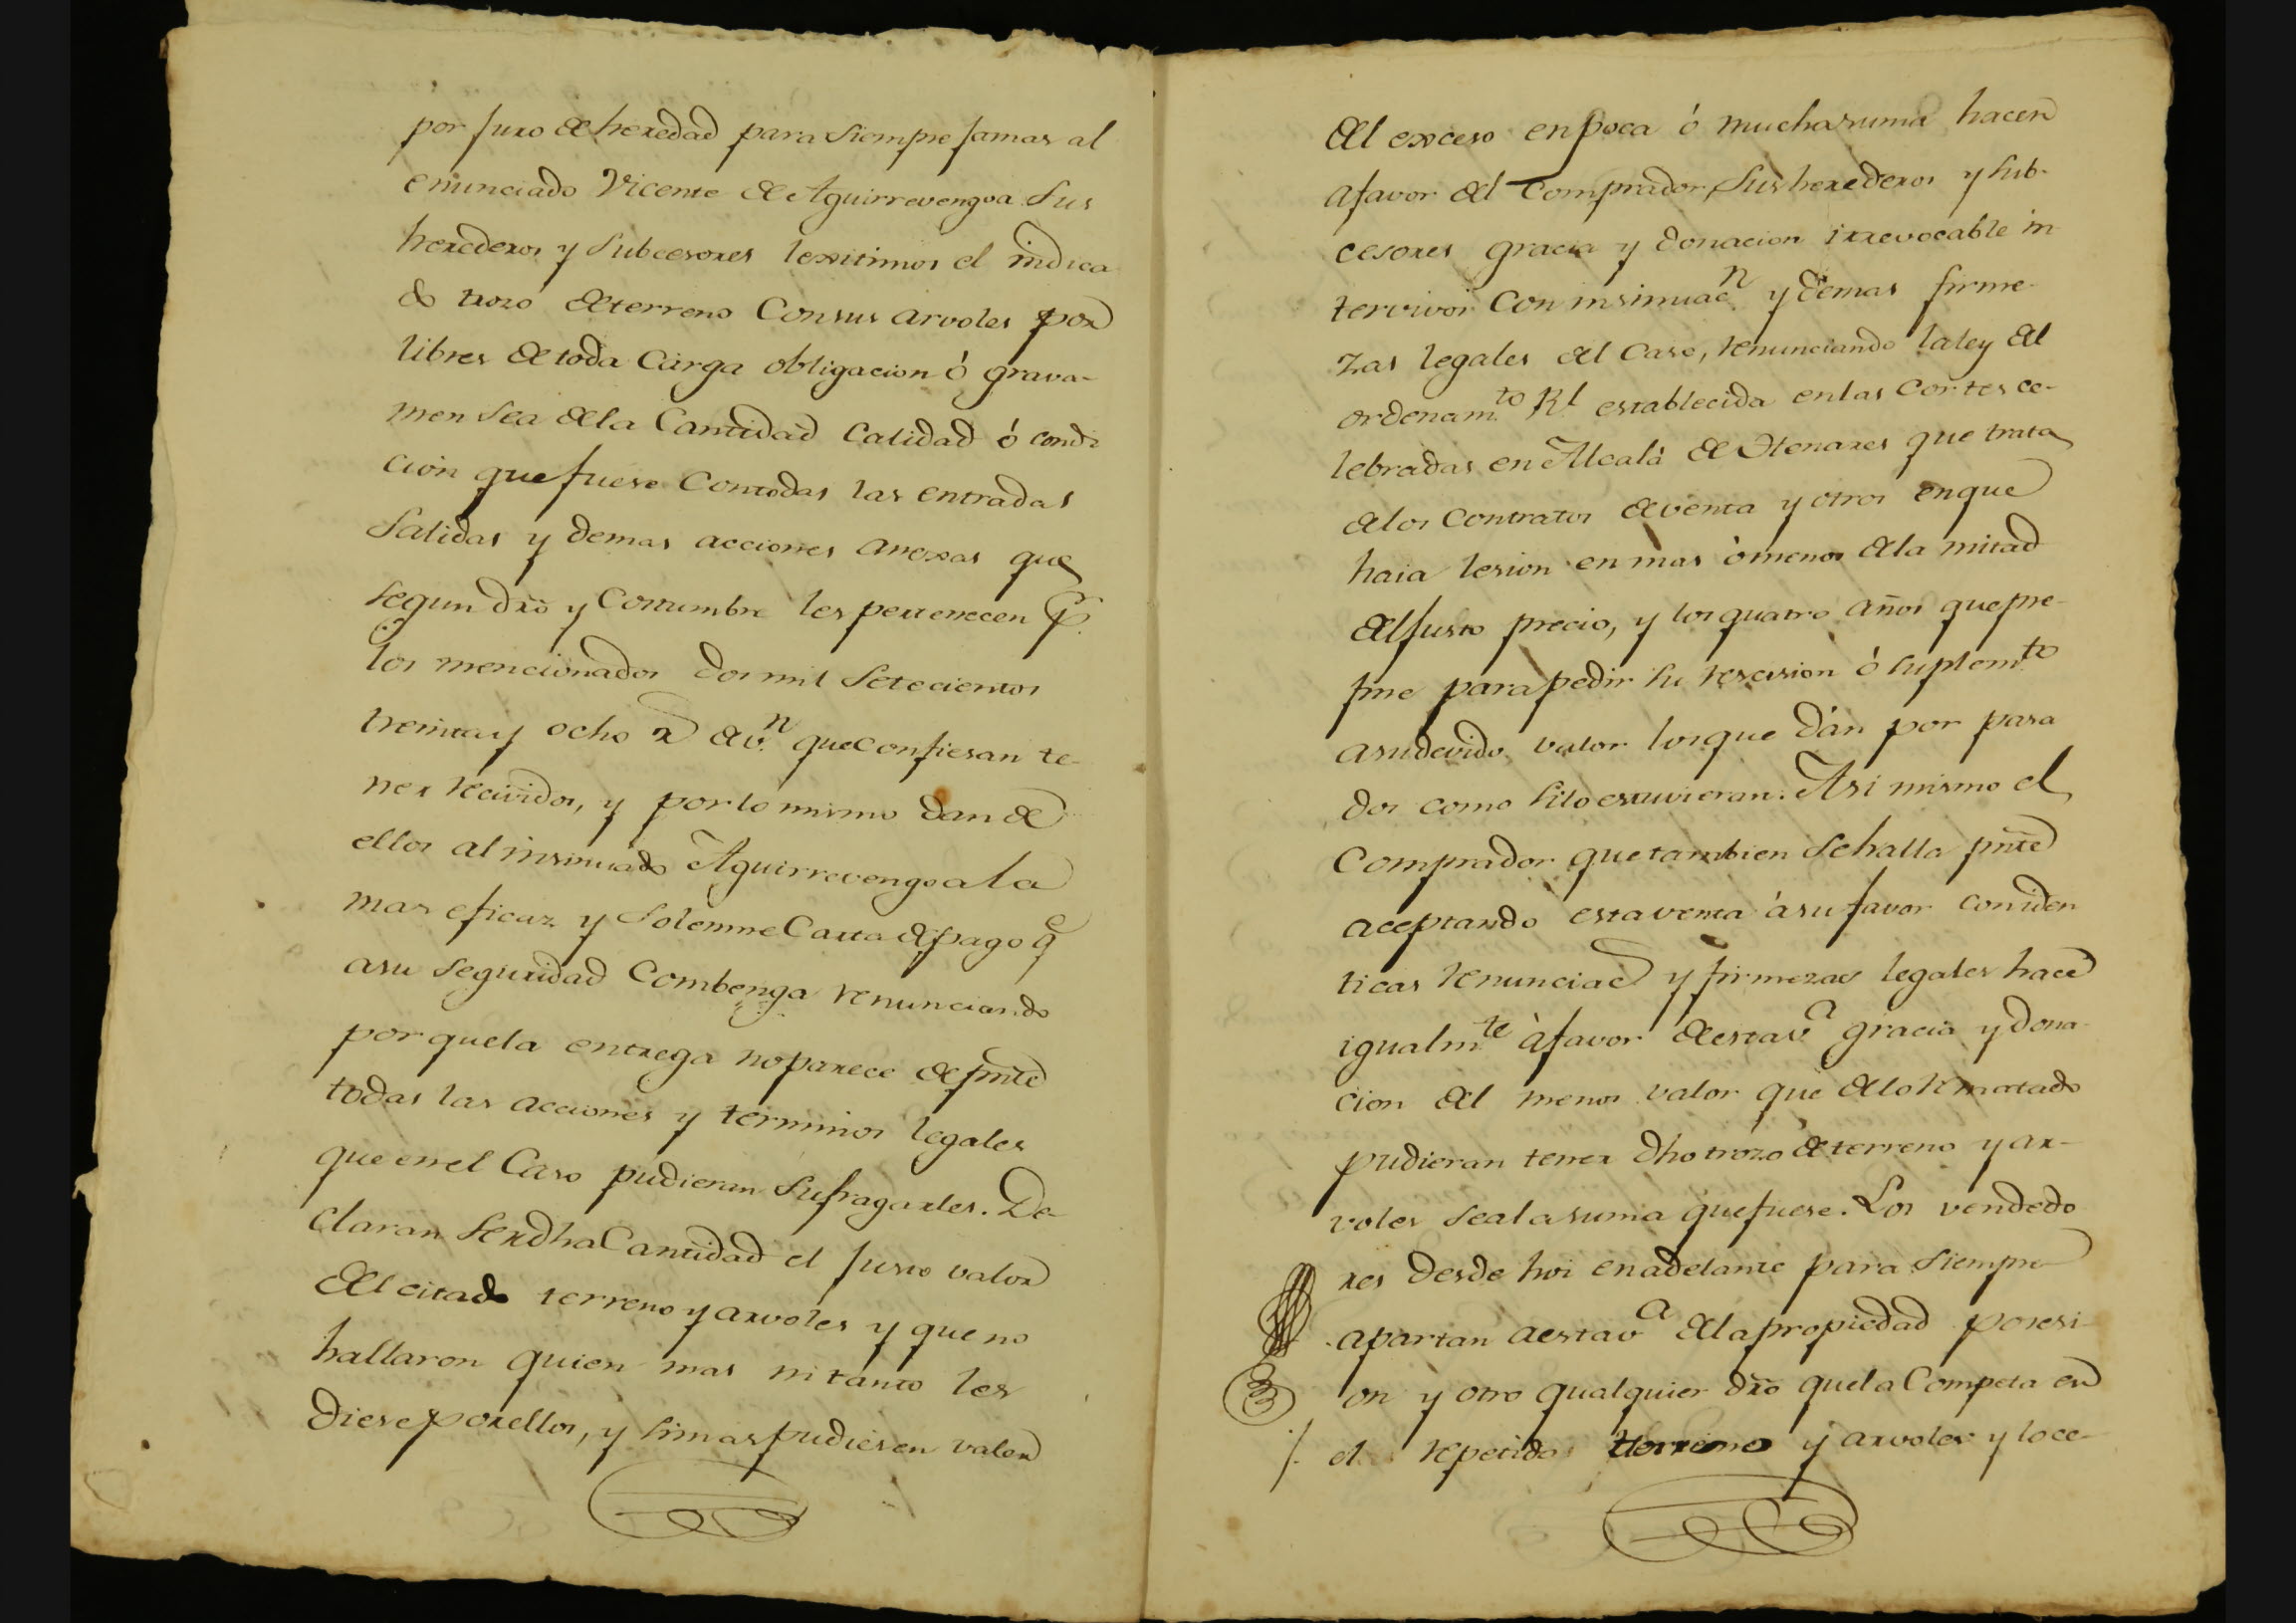 por juro de heredad para siempre jamas al
enunciado Vicente de Aguirrevengoa sus
herederos y subcesores lexitimos el indica
do trozo de terreno con sus arvoles por
libres de toda carga obligacion ó grava-
men sea de la cantidad calidad ó condi
cion que fuere con todas las entradas
salidas y demas acciones anexas que
segun dró y costumbre les pertenecen p.r
los mencionados dos mil setecientos
treinta y ocho r.s de v.n que confiesan te-
ner recividos, y por lo mismo dan de
ellos al insinuado Aguirrevengoa la
mas eficaz y solemne Carta de pago q.e
a su seguridad combenga renunciando
por que la entrega no parece de pnte
todas las acciones y terminos legales
que en el caso pudieran sufragarles. De
claran ser dha Cantidad el justo valor
del citado terreno y arvoles y que no
hallaron quien mas ni tanto les
diese por ellos, y si mas pudiesen valer
del exceso en poca ó mucha suma hacen
a favor del comprador, sus herederos y sub-
cesores gracia y donacion irrevocable in
tervivos con insinuac.n y demas firme-
zas legales del caso, renunciando la ley del
ordenam.to Rl establecida en las Cortes ce-
lebradas en Alcalá de Henares que trata
de los contratos de venta y otros en que
haia lesion en mas ó menos de la mitad
del justo precio, y los quatro años que pre-
fine para pedir su rescision ó suplem.to
a su devido valor los que dán por pasa
dos como si lo estuvieran. Asi mismo el
comprador que tambien se halla pnte
aceptando esta venta á su favor con iden
ticas renunciac.s y firmezas legales hace
igualm.te á favor de esta v.a gracia y dona-
cion del menos valor que de lo rematado
pudieran tener dho trozo de terreno y ar-
voles sea la suma que fuere. Los vendedo
res desde hoi en adelante para siempre
apartan a esta v.a de la propiedad posesi-
on y otro qualquier dró que la competa en
el repetido terreno y arvoles y lo ce-